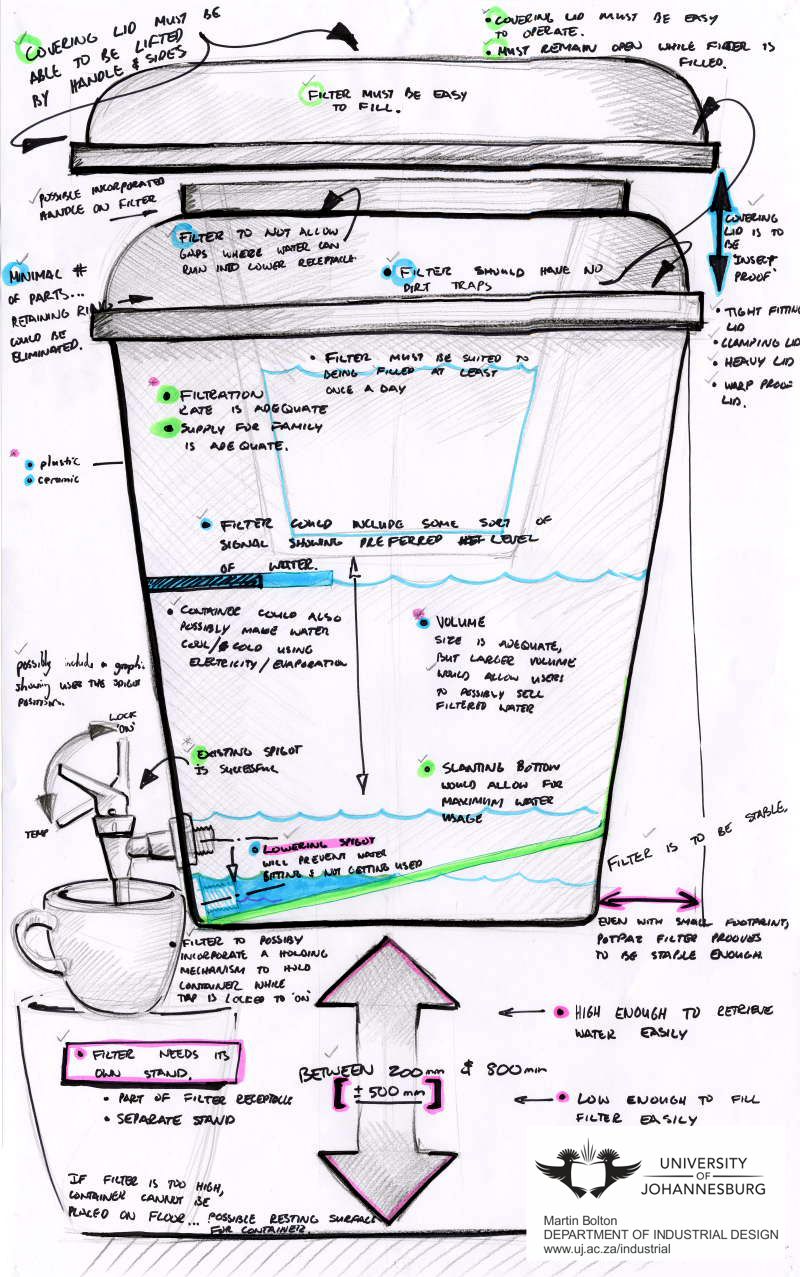 COVERING LID MUST BE
ABLE TO BE LIFTED
BY HANDLE & SIDES
• COVERING LID MUST BE EASY
TO OPERATE.
• MUST REMAIN OPEN WHILE FILTER IS
FILLED.
FILTER MUST BE EASY
TO FILL.
POSSIBLE INCORPORATED
HANDLE ON FILTER
FILTER TO NOT ALLOW
GAPS WHERE WATER CAN
RUN INTO LOWER RECEPTACLE
COVERING
LID IS TO
BE
'INSECT
PROOF'
MINIMAL #
OF PARTS...
RETAINING RING
COULD BE
ELIMINATED.
• FILTER SHOULD HAVE NO
DIRT TRAPS
• TIGHT FITTING
LID
• CLAMPING LID
• HEAVY LID
• WARP PROOF
LID.
• FILTER MUST BE SUITED TO
BEING FILLED AT LEAST
ONCE A DAY
• FILTRATION
RATE IS ADEQUATE
• SUPPLY FOR FAMILY
IS ADEQUATE.
• plastic
• ceramic
• FILTER COULD INCLUDE SOME SORT OF
SIGNAL SHOWING PREFERRED LEVEL
OF WATER.
• CONTAINER COULD ALSO
POSSIBLY MAKE WATER
COOL/COLD USING
ELECTRICITY/EVAPORATION
• VOLUME
SIZE IS ADEQUATE,
BUT LARGER VOLUME
WOULD ALLOW USERS
TO POSSIBLY SELL
FILTERED WATER
possibly include a graphic
showing users the spigot
position.
LOCK
'ON'
TEMP
EXISTING SPIGOT
IS SUCCESSFUL
• SLANTING BOTTOM
WOULD ALLOW FOR
MAXIMUM WATER
USAGE
• LOWERING SPIGOT
WILL PREVENT WATER
SITTING & NOT GETTING USED
FILTER IS TO BE STABLE.
EVEN WITH SMALL FOOTPRINT,
POTPAZ FILTER PROOVES
TO BE STABLE ENOUGH
• FILTER TO POSSIBY
INCORPORATE A HOLDING
MECHANISM TO HOLD
CONTAINER WHILE
TAP IS LOCKED TO 'ON'
• HIGH ENOUGH TO RETRIEVE
WATER EASILY
• FILTER NEEDS ITS
OWN STAND.
• PART OF FILTER RECEPTACLE
• SEPARATE STAND
BETWEEN 200mm & 800mm
[± 500mm]
• LOW ENOUGH TO FILL
FILTER EASILY
IF FILTER IS TOO HIGH,
CONTAINER CANNOT BE
PLACED ON FLOOR... POSSIBLE RESTING SURFACE
FOR CONTAINER.
UNIVERSITY
OF
JOHANNESBURG
Martin Bolton
DEPARTMENT OF INDUSTRIAL DESIGN
www.uj.ac.za/industrial